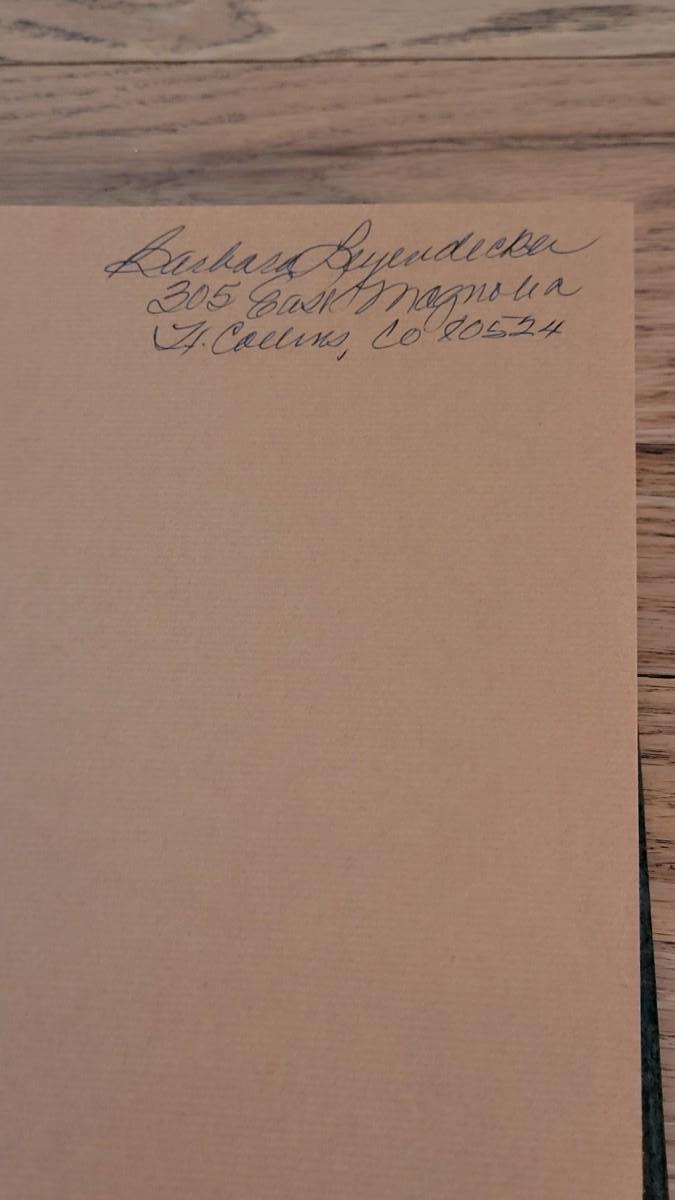 Barbara Leyendecker
305 East Magnolia
Ft. Collins, CO 80524